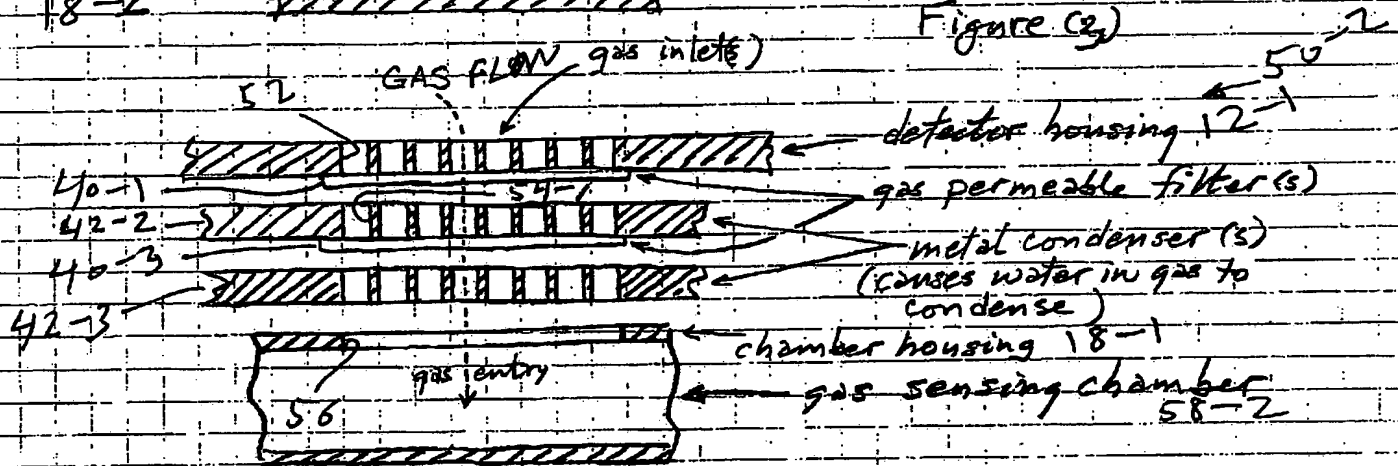 18-2
Figure (2)
50-2
GAS FLOW
gas inlet(s)
52
detector housing 12-1
40-1
54-1
gas permeable filter(s)
42-2
40-3
metal condenser(s)
(causes water in gas to
condense)
42-3
chamber housing 18-1
gas entry
gas sensing chamber
58-2
56